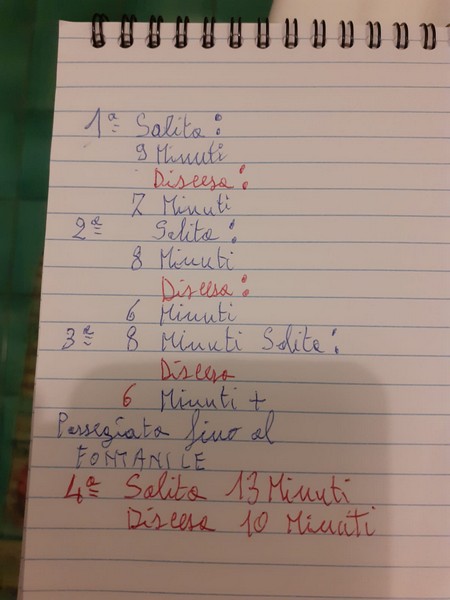 1ª Salita:
9 Minuti
Discesa:
7 Minuti
2ª Salita:
8 Minuti
Discesa:
6 Minuti
3ª 8 Minuti Salita:
Discesa
6 Minuti +
Passegiata fino al
FONTANILE
4ª Salita 13 Minuti
Discesa 10 Minuti